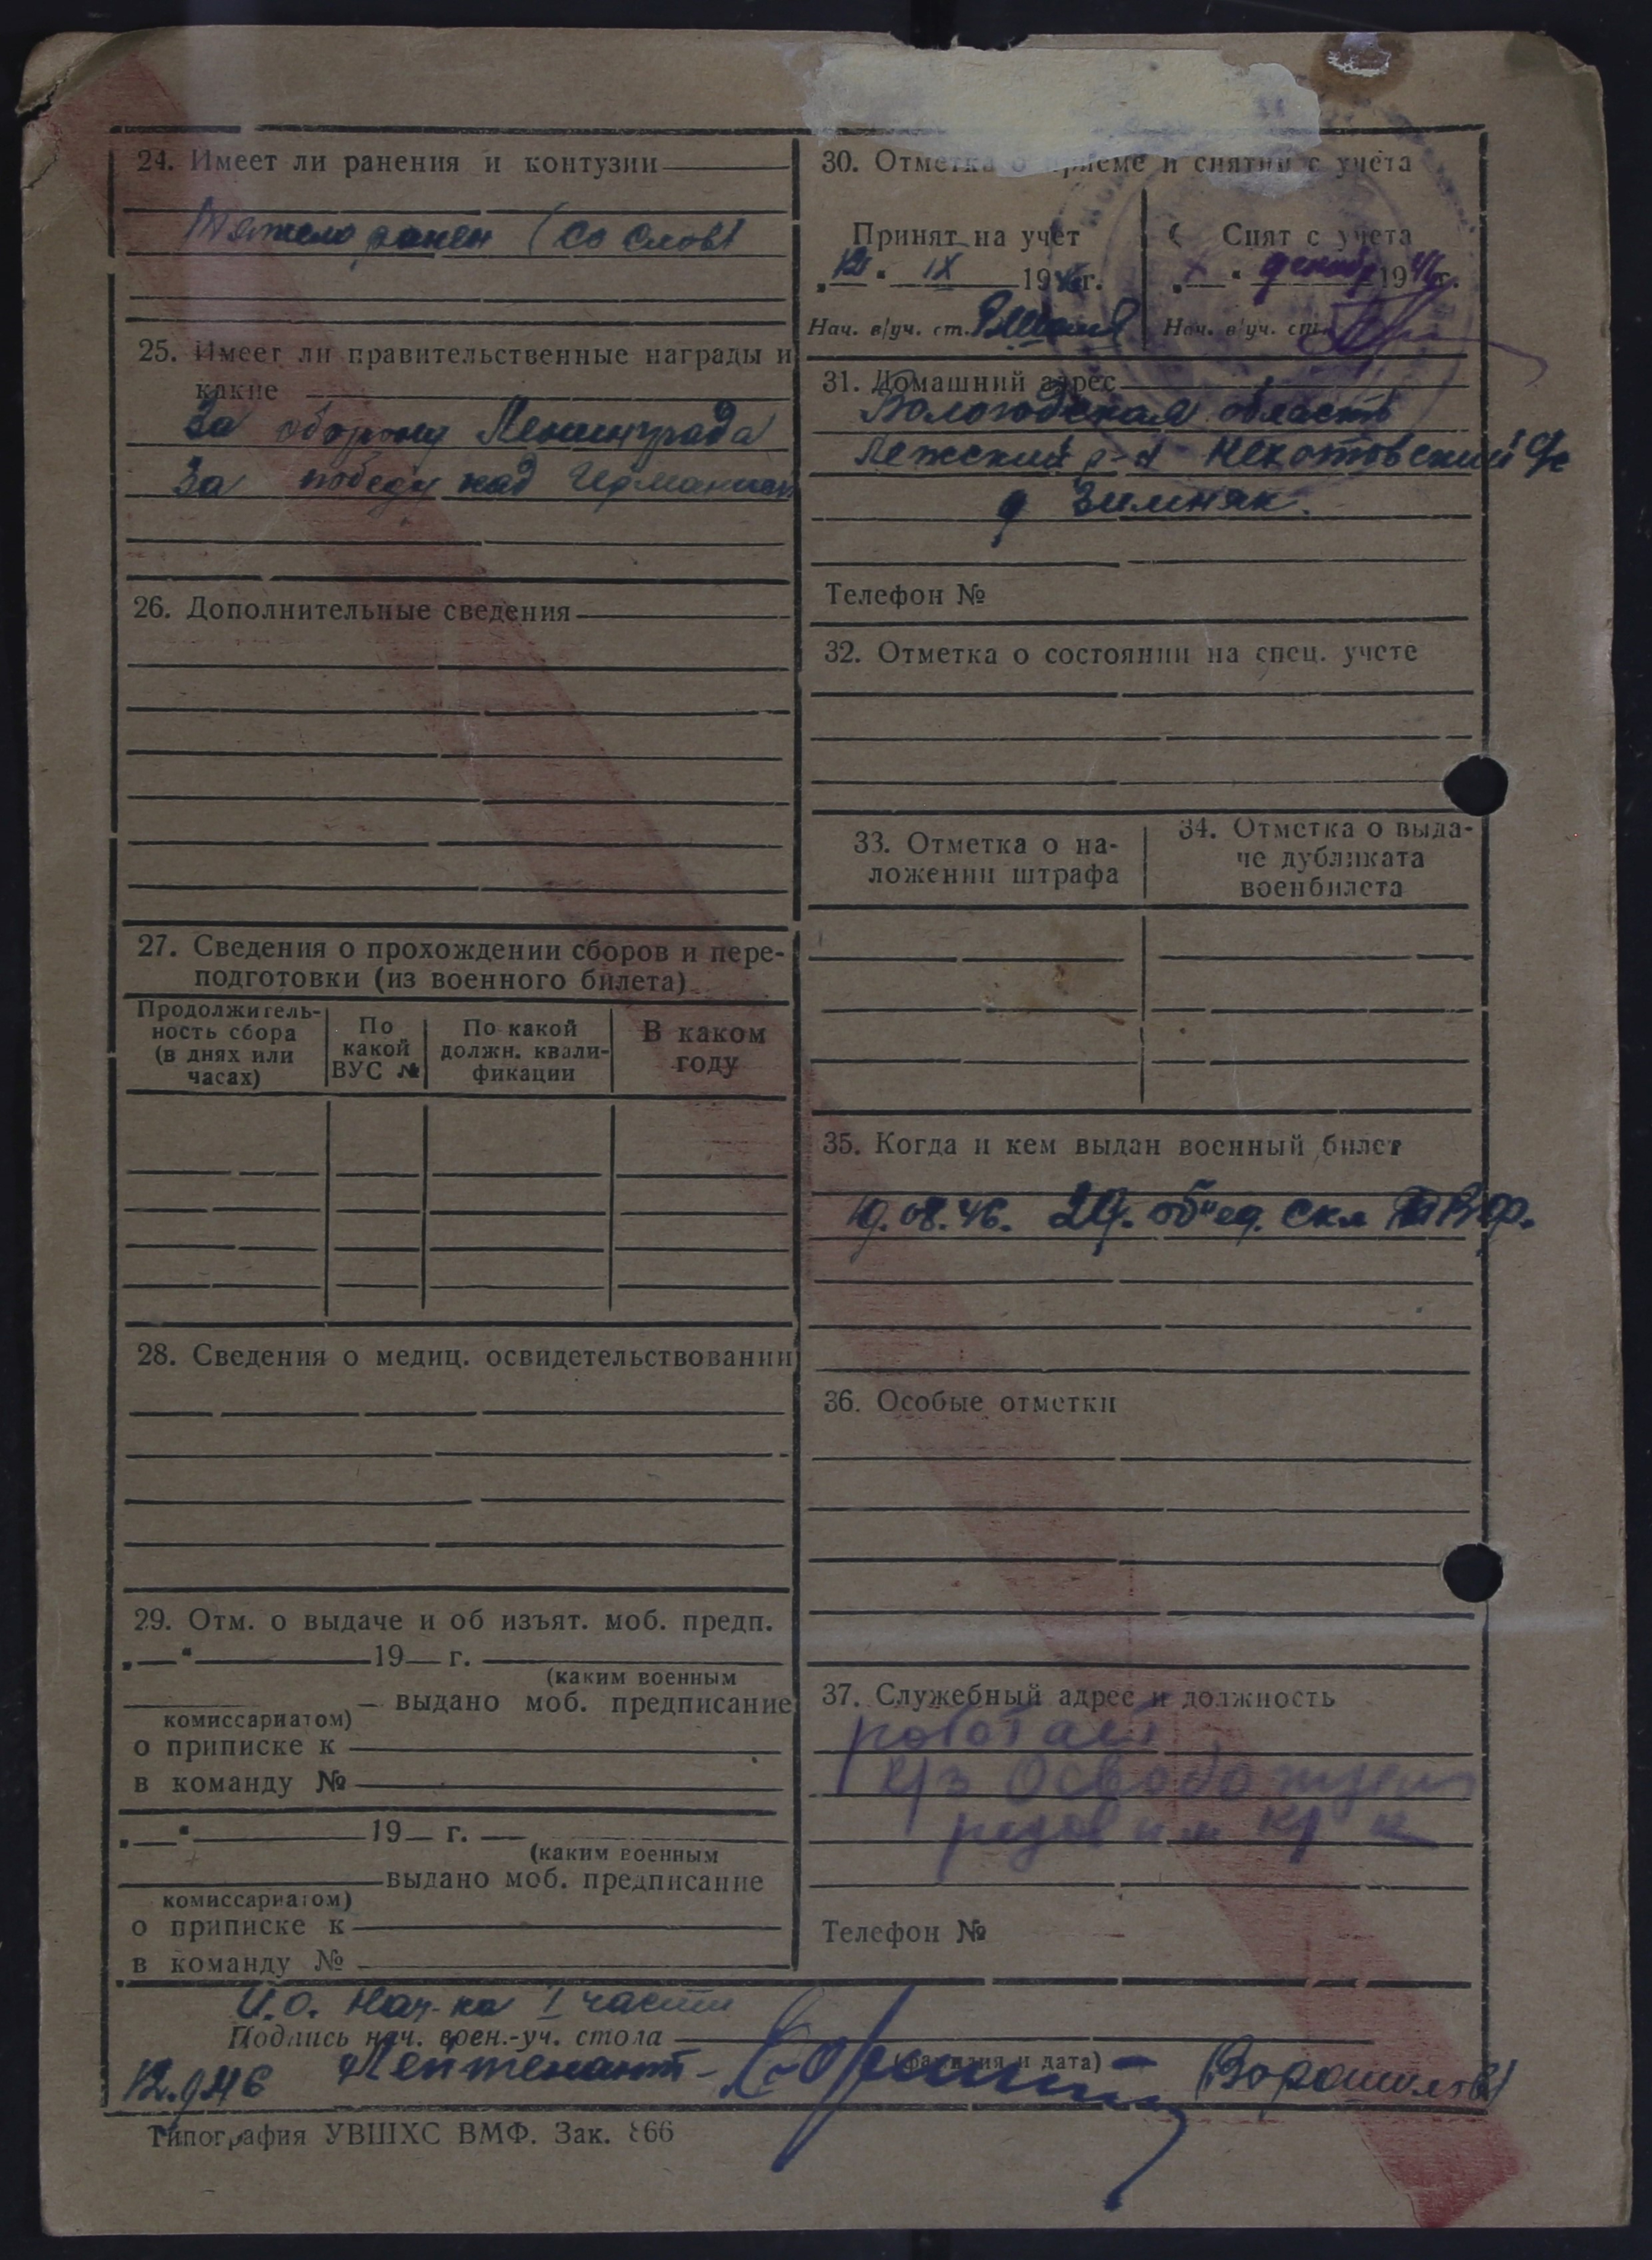 24. Имеет ли ранения и контузии
Тяжело ранен (со слов)
25. Имеет ли правительственные награды и
какие
За оборону Ленинграда
За победу над Германией
26. Дополнительные сведения
27. Сведения о прохождении сборов и пере-
подготовки (из военного билета)
Продолжитель-
ность сбора
(в днях или
часах)
По
какой
ВУС №
По какой
должн. квали-
фикации
В каком
году
28. Сведения о медиц. освидетельствовании
29. Отм. о выдаче и об изъят. моб. предп.
„—“ 19— г.
(каким военным
— выдано моб. предписание
комиссариатом)
о приписке к
в команду №
„—“ 19— г. —
(каким военным
выдано моб. предписание
комиссариатом)
о приписке к
в команду №
30. Отметка о приеме и снятии с учета
Принят на учет
„12“ IX 1946г.
Нач. в/уч. ст.
Снят с учета
„—“ декабр 1946г.
Нач. в/уч. ст.
31. Домашний адрес
Вологодская область
Лежский р-н
д Зимняк.
Телефон №
32. Отметка о состоянии на спец. учете
33. Отметка о на-
ложении штрафа
34. Отметка о выда-
че дубликата
военбилета
35. Когда и кем выдан военный билет
19.08.46. 29. объед. скл ВМФ.
36. Особые отметки
37. Служебный адрес и должность
работает
к/з
рядовым
Телефон №
И.о. Нач-ка I части
Подпись нач. воен.-уч. стола
(фамилия и дата)
12.9.46 Лейтенант - (Ворошилов)
Типография УВШХС ВМФ. Зак. 866